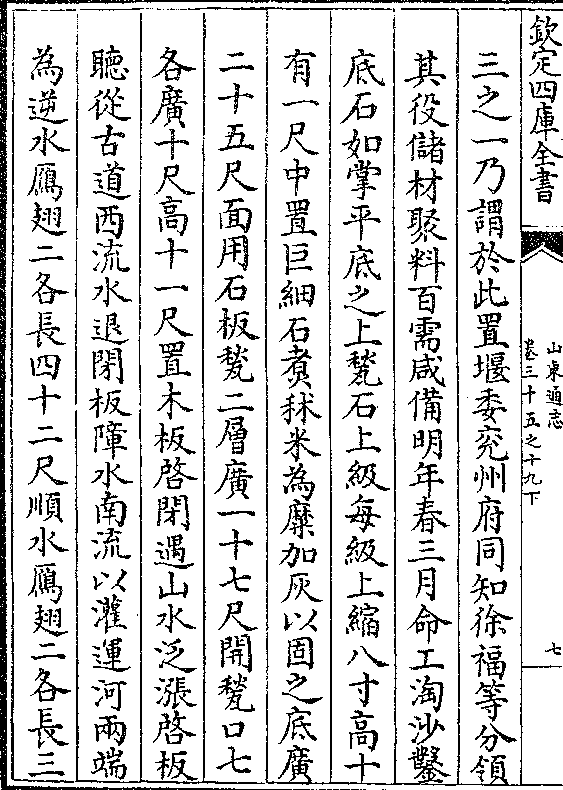 欽定四庫全書
山東通志
卷三十五之十九下
七
三之一乃謂於此置堰委兖州府同知徐福等分領
其役儲材聚料百需咸備明年春三月命工淘沙鑿
底石如掌平底之上甃石上級每級上縮八寸高十
有一尺中置巨細石煑秫米為糜加灰以固之底廣
二十五尺面用石板甃二層廣一十七尺開甃口七
各廣十尺高十一尺置木板啓閉遇山水泛漲啓板
聽從古道西流水退閉板障水南流以灌運河兩端
為逆水鴈翅二各長四十二尺順水鴈翅二各長三